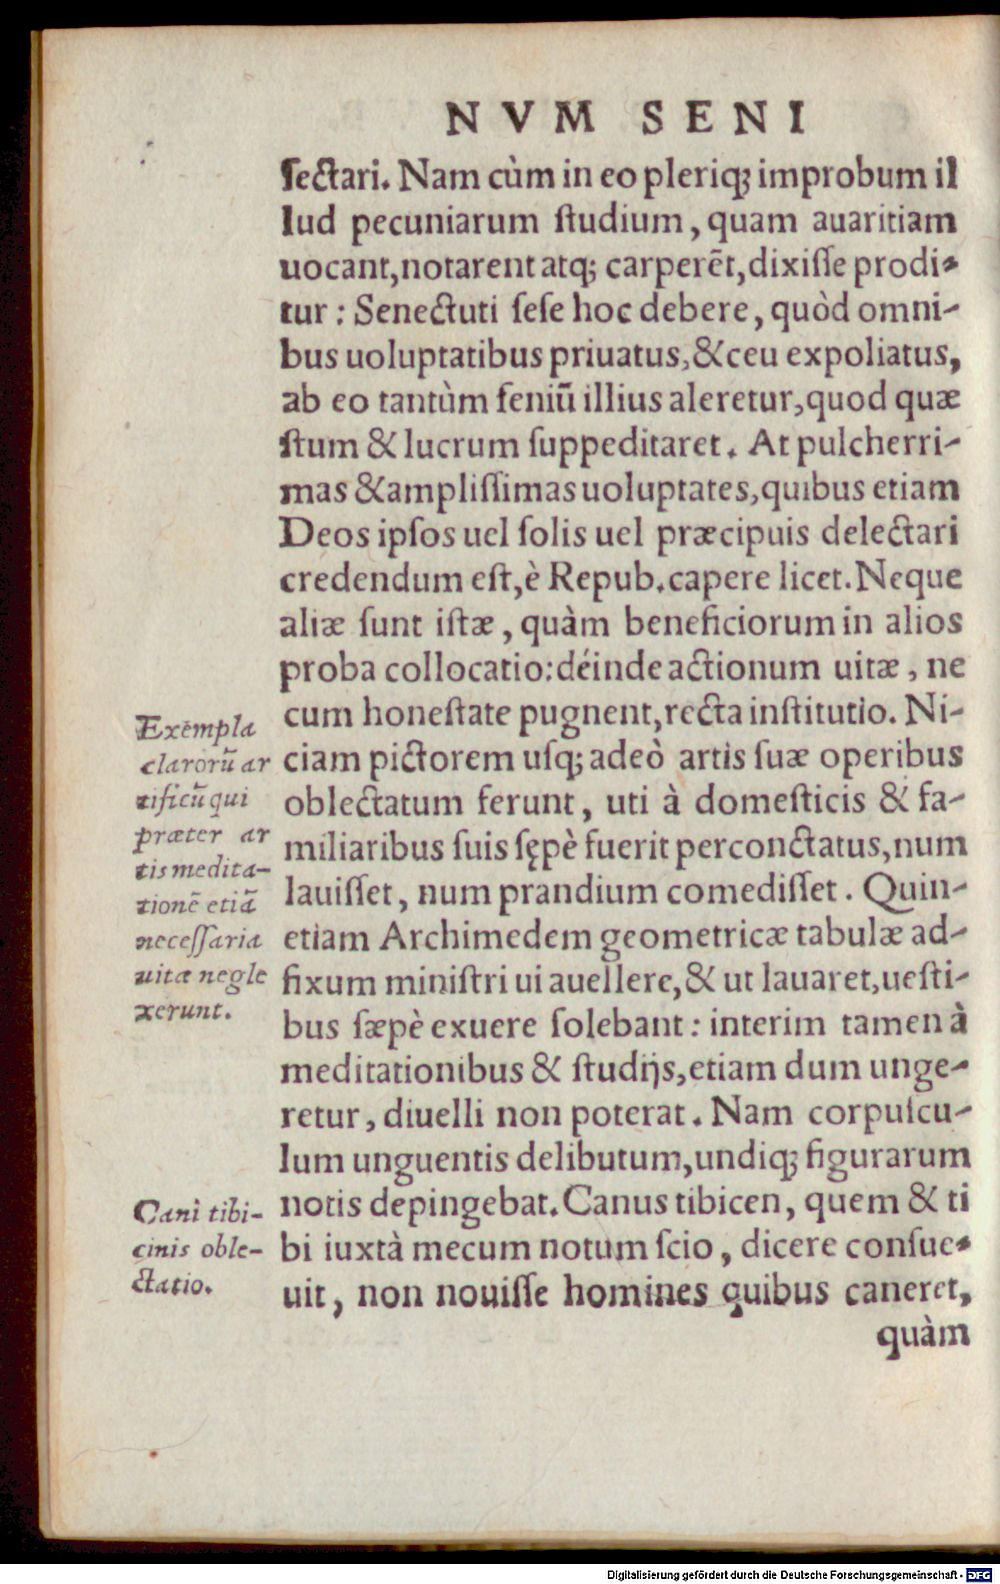 NVM SENI
ſectari. Nam cùm in eo pleriq; improbum il
lud pecuniarum ſtudium, quam auaritiam
uocant, notarent atq; carperēt, dixiſſe prodi-
tur: Senectuti ſeſe hoc debere, quòd omni-
bus uoluptatibus priuatus, & ceu expoliatus,
ab eo tantùm ſeniū illius aleretur, quod quæ
ſtum & lucrum ſuppeditaret. At pulcherri-
mas & ampliſſimas uoluptates, quibus etiam
Deos ipſos uel ſolis uel præcipuis delectari
credendum eſt, è Repub. capere licet. Neque
aliæ ſunt iſtæ, quàm beneficiorum in alios
proba collocatio: déinde actionum uitæ, ne
cum honeſtate pugnent, recta inſtitutio. Ni-
ciam pictorem uſq; adeò artis ſuæ operibus
oblectatum ferunt, uti à domeſticis & fa-
miliaribus ſuis ſępè fuerit perconctatus, num
lauiſſet, num prandium comediſſet. Quin-
etiam Archimedem geometricæ tabulæ ad-
fixum miniſtri ui auellere, & ut lauaret, ueſti-
bus ſæpè exuere ſolebant: interim tamen à
meditationibus & ſtudijs, etiam dum unge-
retur, diuelli non poterat. Nam corpuſcu-
lum unguentis delibutum, undiq; figurarum
notis depingebat. Canus tibicen, quem & ti
bi iuxtà mecum notum ſcio, dicere conſue-
uit, non nouiſſe homines quibus caneret,
quàm
Exempla
clarorū ar
tificū qui
præter ar
tis medita-
tionē etiā
neceſſaria
uitæ negle
xerunt.
Cani tibi-
cinis oble-
ctatio.
Digitalisierung gefördert durch die Deutsche Forschungsgemeinschaft - DFG